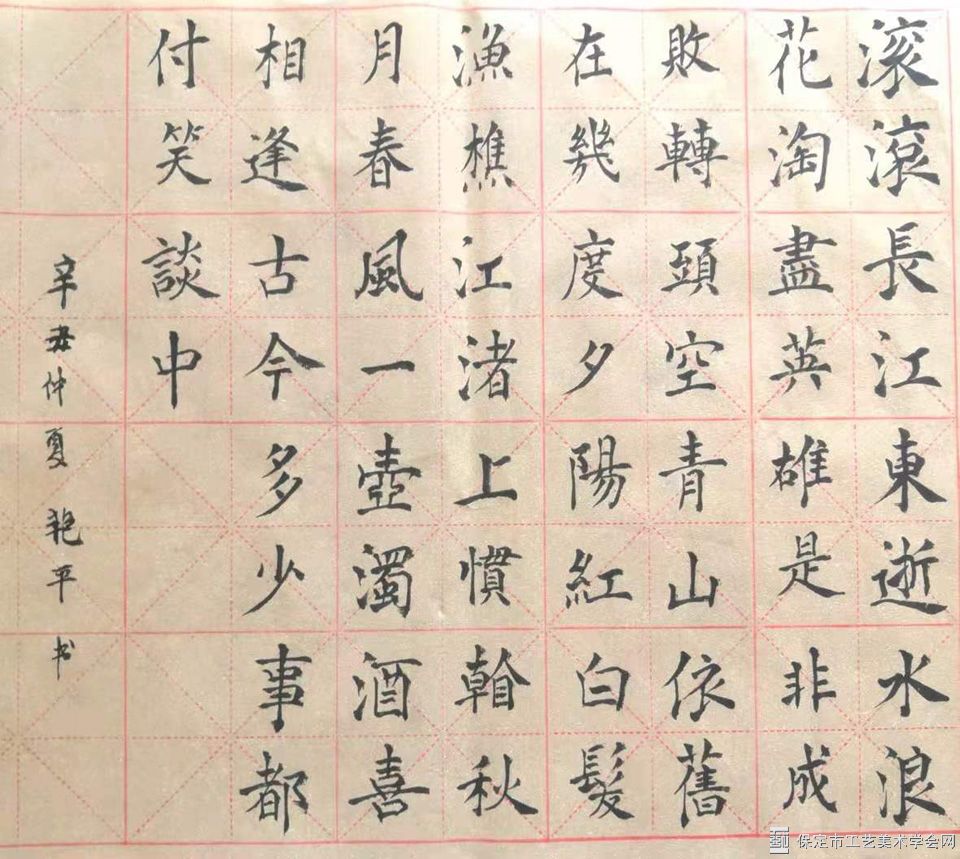 滚滾長江東逝水浪
花淘盡英雄是非成
敗轉頭空青山依舊
在幾度夕陽紅白髮
漁樵江渚上慣看秋
月春風一壺濁酒喜
相逢古今多少事都
付笑談中
辛丑仲夏艳平书
保定市工艺美术学会网